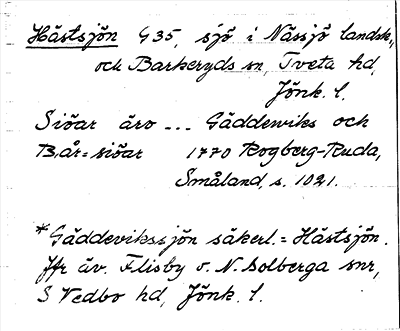 Hästsjön G35, sjö i Nässjö landsk.,
och Barkeryds sn, Tveta hd,
Jönk. l.
Siöar äro ... Gäddewiks och
B.år=siöar 1770 Rogberg-Ruda,
Småland, s. 1021.
*Gäddevikssjön säkerl. = Hästsjön.
Jfr äv. Flisby o. N. Solberga snr,
S Vedbo hd, Jönk. l.